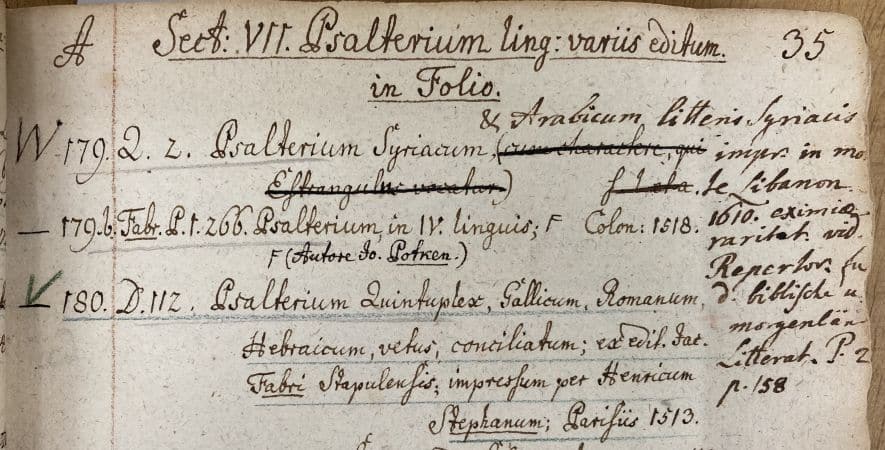 A Sect: VII. Psalterium ling: variis editum. 35
in Folio.
& Arabicum litteris Syriacis
W 179. Q. 2. Psalterium Syriacum, (cum charactere, qui impr. in mo
Estrangulus vocatur.) f. Lata. te Libanon.
1610. eximiæ
— 179.b. Fabr. P. 1. 266. Psalterium, in IV. linguis; F Colon: 1518. raritat. vid.
F (Autore Jo. Potken.) Repertor. fu
— 180. D. 112. Psalterium Quintuplex, Gallicum, Romanum, d. biblische u.
morgenlän
Hebraicum, vetus, conciliatum; ex edit. Jac. Litterat. P. 2
Fabri Stapulensis; impressum per Henricum p. 158
Stephanum; Parisiis 1513.